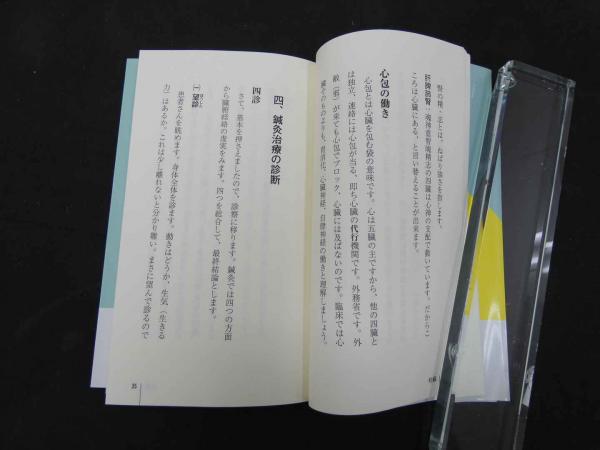 腎の精・志とは、ねばり強さを指します。
肝脾肺腎…魂神意智魄精志の四臓は心神の支配で動いています。だからこ
ころは心臓にある、と言い替えることが出来ます。
心包の働き
心包とは心臓を包む袋の意味です。心は五臓の主ですから、他の四臓と
は独立、連絡には心包が当る、即ち心臓の代行機関です。外務省です。外
敵（邪）が来ても心包でブロック、心臓には及ばないのです。臨床では心
臓そのものよりも、前消化、心臓神経、自律神経の働きと理解しましょう。
四、鍼灸治療の診断
四診
さて、基本を押さえましたので、診察に移ります。鍼灸では四つの方面
から臓腑経絡の虚実をみます。四つを総合して、最終結論とします。
㈠望診
ぼうしん
患者さんを眺めます。身体全体を診ます。動きはどうか、生気（生きる
力）はあるか。これは少し離れないと分かり難い。まさに望んで診るので
35